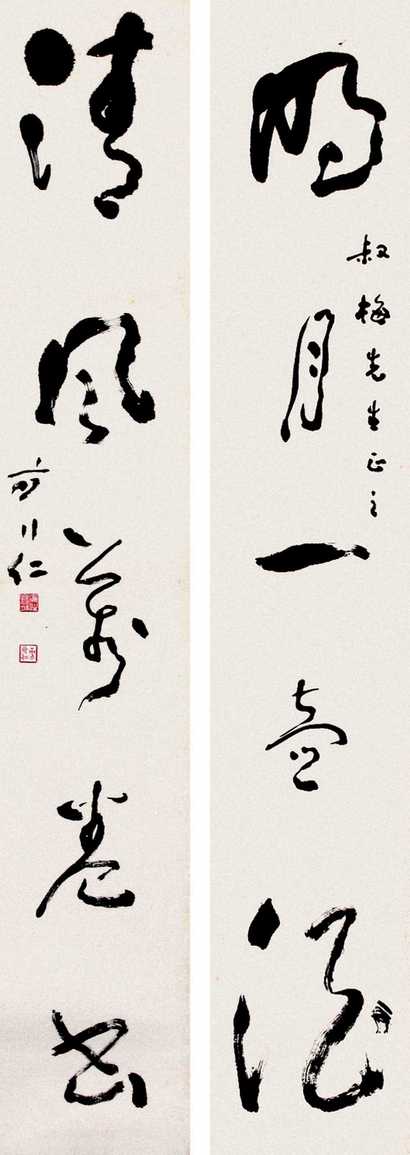 明月一壺酒
叔梅先生正之
清風萬卷書
仁